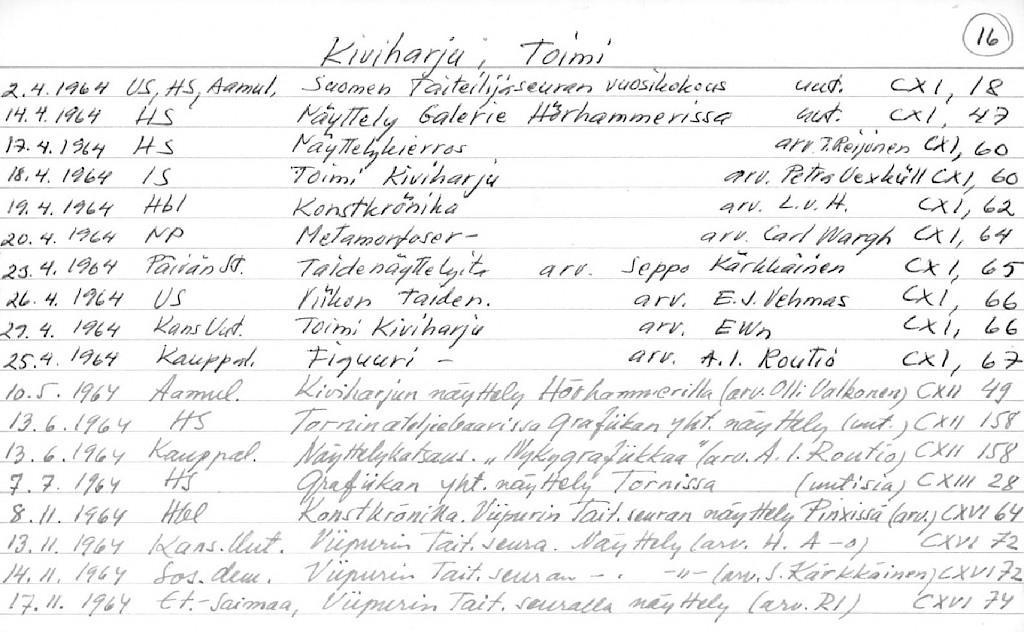 16
Kiviharju, Toimi
2.4.1964 US, HS, Aamul, Suomen Taiteilijaseuran vuosikokous uut. CXI, 18
14.4.1964 HS Näyttely Galerie Hörhammerissa uut. CXI, 47
17.4.1964 HS Näyttelykierros arv. T. Reijonen CXI, 60
18.4.1964 IS Toimi Kiviharju arv. Petra Uexküll CXI, 60
19.4.1964 Hbl Konstkrönika arv. L.v.H. CXI, 62
20.4.1964 NP Metamorfoser- arv. Carl Wargh CXI, 64
23.4.1964 Päivän S. Taidenäyttelyitä arv. Seppo Kärkkäinen CXI, 65
26.4.1964 US Viikon taiden. arv. E.J. Vehmas CXI, 66
27.4.1964 Kans Uut. Toimi Kiviharju arv. EWn CXI, 66
25.4.1964 Kauppal. Figuuri - arv. A.I. Routio CXI, 67
10.5.1964 Aamul. Kiviharjun näyttely Hörhammerilla (arv. Olli Valkonen) CXII 49
13.6.1964 HS Torninateljeebaarissa Grafiikan yht. näyttely (uut.) CXII 158
13.6.1964 Kauppal. Näyttelykatsaus. "Nykygrafiikkaa" (arv. A.I. Routio) CXII 158
7.7.1964 HS Grafiikan yht. näyttely Tornissa (uutisia) CXIII 28
8.11.1964 Hbl Konstkrönika. Viipurin Tait. seuran näyttely Pinxissä (arv.) CXVI 64
13.11.1964 Kans. Uut. Viipurin Tait. seura. Näyttely (arv. H. A-o) CXVI 72
14.11.1964 Sos. dem. Viipurin Tait. seuran - . -"- (arv. S. Kärkkäinen) CXVI 72
17.11.1964 Et.-Saimaa, Viipurin Tait. seuralla näyttely (arv. RI) CXVI 74